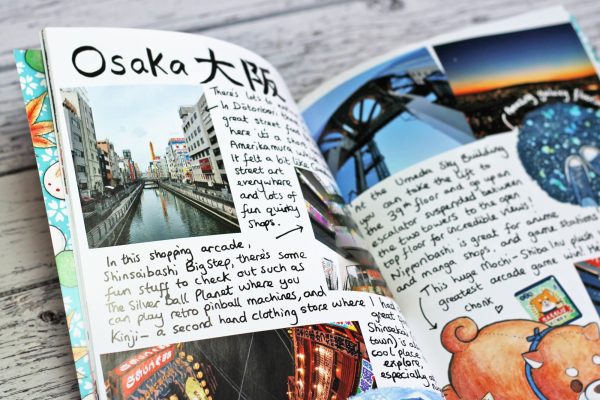 Osaka 大阪
There's lots to
In Dotonbori
great street food
here it's a short
Amerikamura
It felt a bit like
street art
everywhere
and lots of
fun quirky
shops.
In this shopping arcade,
Shinsaibashi Big Step, there's some
fun stuff to check out such as
The Silver Ball Planet where you
can play retro pinball machines, and
Kinji - a second hand clothing store where
I had
great
Shinsekai
town) is al
cool place
explore,
especially
Amazing galaxy floor
At the Umeda Sky Building
you can take the lift to
the 39th floor and go up an
escalator suspended between
the two towers to the open
top floor for incredible views!
Nipponbashi is great for anime
and manga shops, and game stations
This huge Mochi-Shiba Inu plush
greatest arcade game win!
chonk